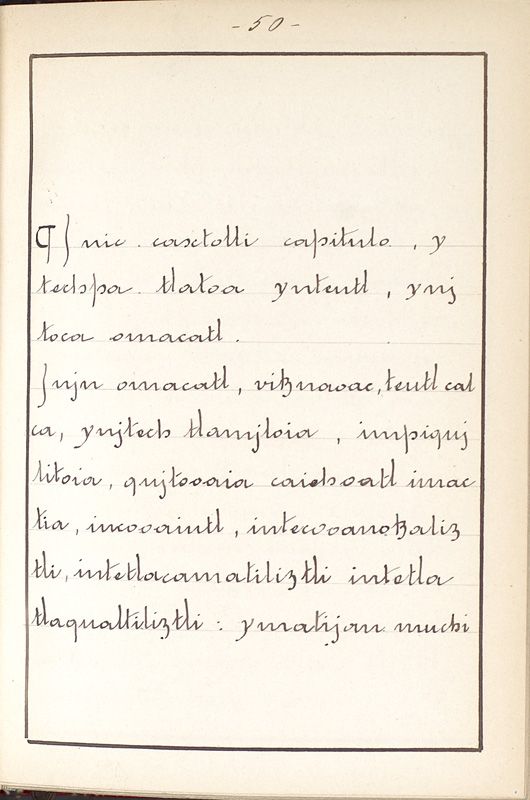 - 50 -
¶ Jnic. caxtolli capitulo, y
techpa. tlatoa ynteutl, ynj
toca omacatl.
Jnjn omacatl, vitznaoac, teutl cat
ca, ynjtech tlamjloia, impiquj
litoia, qujtooaia caiehoatl imac
tia, incooaiutl, intecooanotzaliz
tli, intetlacamatiliztli intetla
tlaqualtiliztli: ymatijan muchi